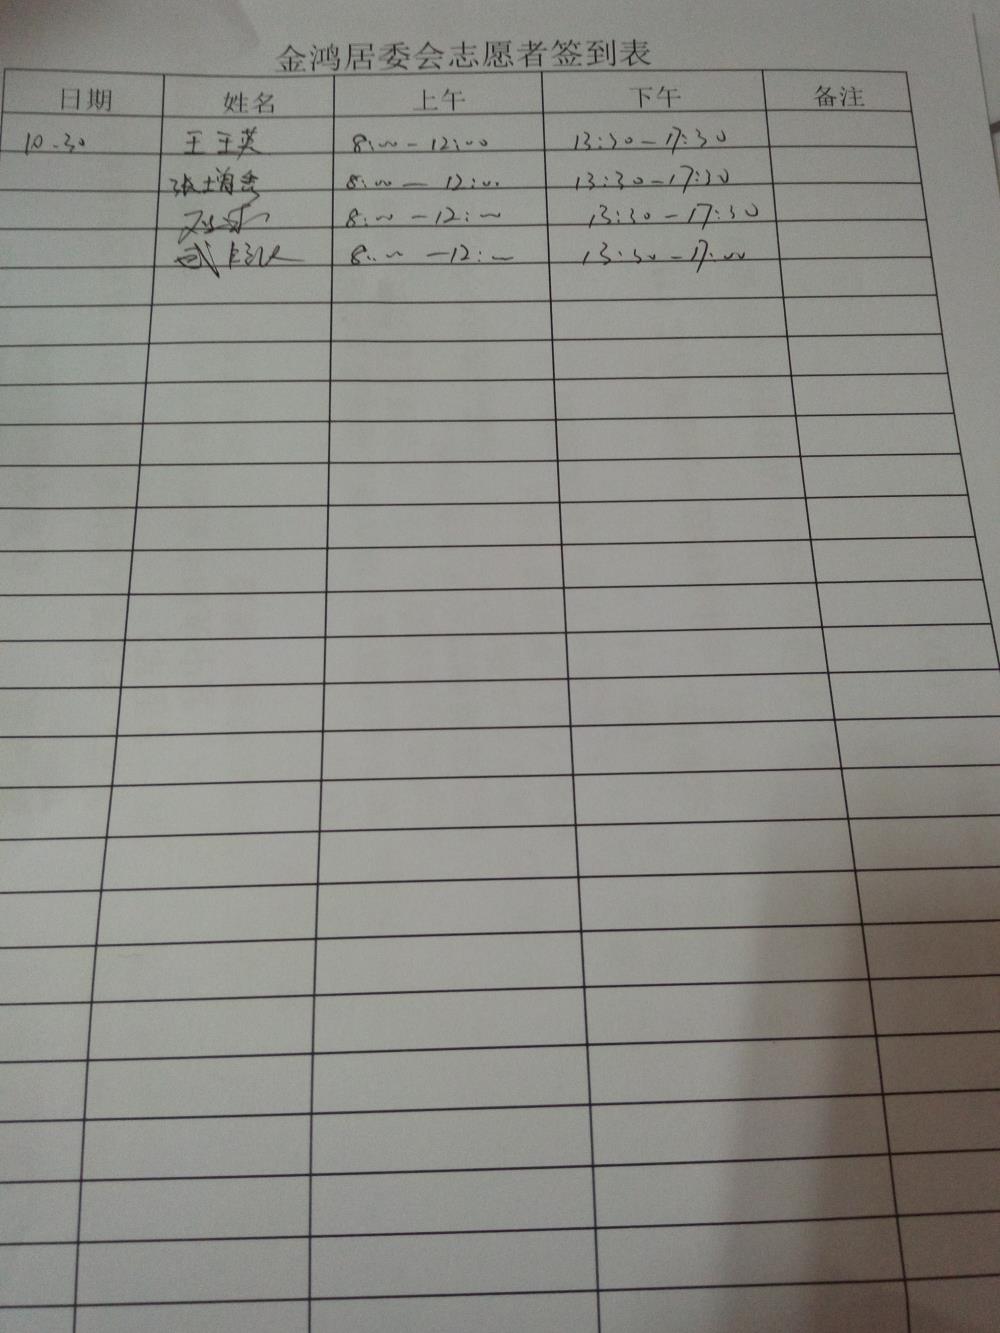 金鸿居委会志愿者签到表
日期 姓名 上午 下午 备注
10.30 王玉英 8:00-12:00 13:30-17:30
张增秀 8:00-12:00 13:30-17:30
8:00-12:00 13:30-17:30
8:00-12:00 13:30-17:00